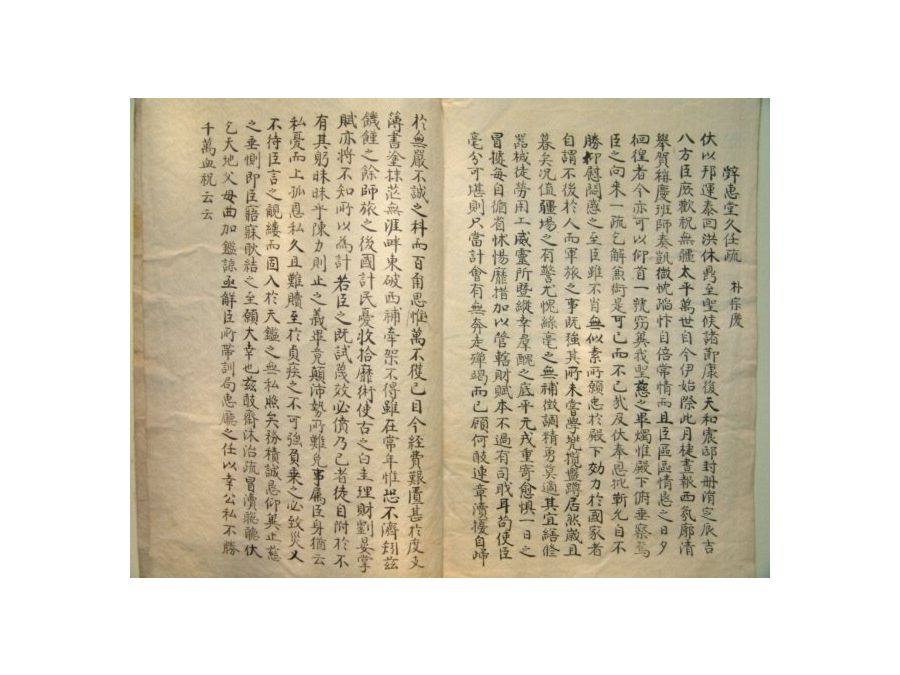 辭惠堂久任疏
朴宗慶
伏以邦運泰回洪休鼎至聖候諸節康復天和震邸封冊涓定辰吉
八方臣庶歡祝無疆太平萬世自今伊始際此月捷晝報西氛廓清
擧賀稱慶班師奏凱微忱蹈忭自倍常情而且臣區區情悃之日夕
徊徨者今亦可以仰首一號竊冀我聖慈之畢燭惟殿下俯垂察焉
臣之向來一疏乞解兼銜是可已而不已哉及伏奉恩批靳允自不
勝抑慰閔感之至臣雖不肖無似素所願忠於殿下効力於國家者
自謂不後於人而軍旅之事旣强其所未嘗學兜攬蠱蹲居然歲且
暮矣况值疆場之有警尤愧絲毫之無補徵調精男莫適其宜繕修
器械徒勞用工威靈所曁縱幸羣醜之底平元戎重寄愈惧一日之
冒據每自循省怵惕靡措加以管轄財賦本不過有司職耳苟使臣
毫分可堪則只當計會有無奔走殫竭而已顧何敢連章瀆擾自歸
於無嚴不誠之科而百爾思惟萬不獲已目今經費艱匱甚於度支
簿書塗抹茫無涯畔東破西補牽架不得雖在常年惟恐不濟矧玆
饑饉之餘師旅之後國計民憂收拾靡術使古之白圭理財劉晏掌
賦亦將不知所以爲計若臣之旣試蔑效必僨乃已者徒自附於不
有其躬昧昧乎陳力則止之義畢竟顚沛勢所難免事屬臣身猶云
私憂而上孤恩私久且難贖至於貞疾之不可強負乘之必致災又
不待臣言之覼縷而固入於天鑑之無私照矣務積誠悃仰冀止慈
之垂惻卽臣寤寐耿結之至願大幸也玆敢齋沐治疏冒瀆聽聽伏
乞天地父母曲加鑑諒亟解臣所帶訓局惠廳之任以幸公私不勝
千萬血祝云云